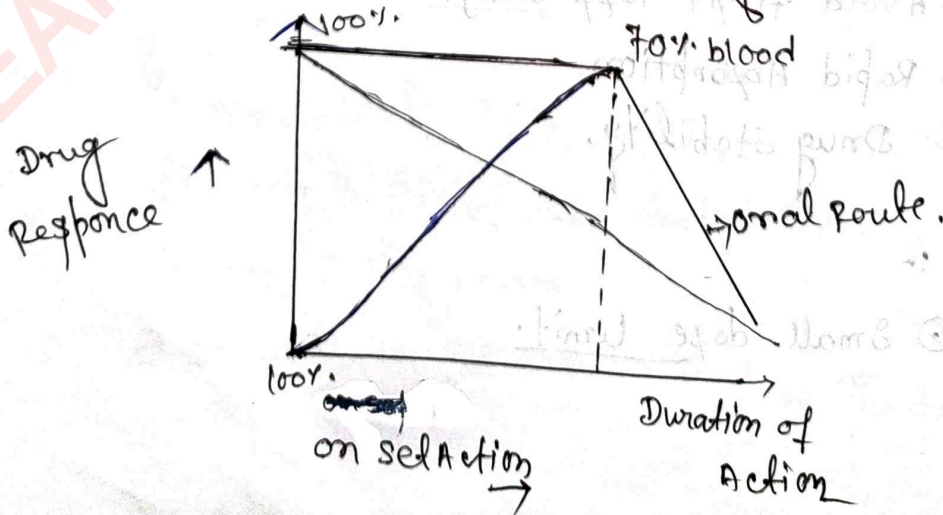 100%.
70% blood
Drug
Responce
↑
→ onal Route.
100%.
on setAction
→
Duration of
Action